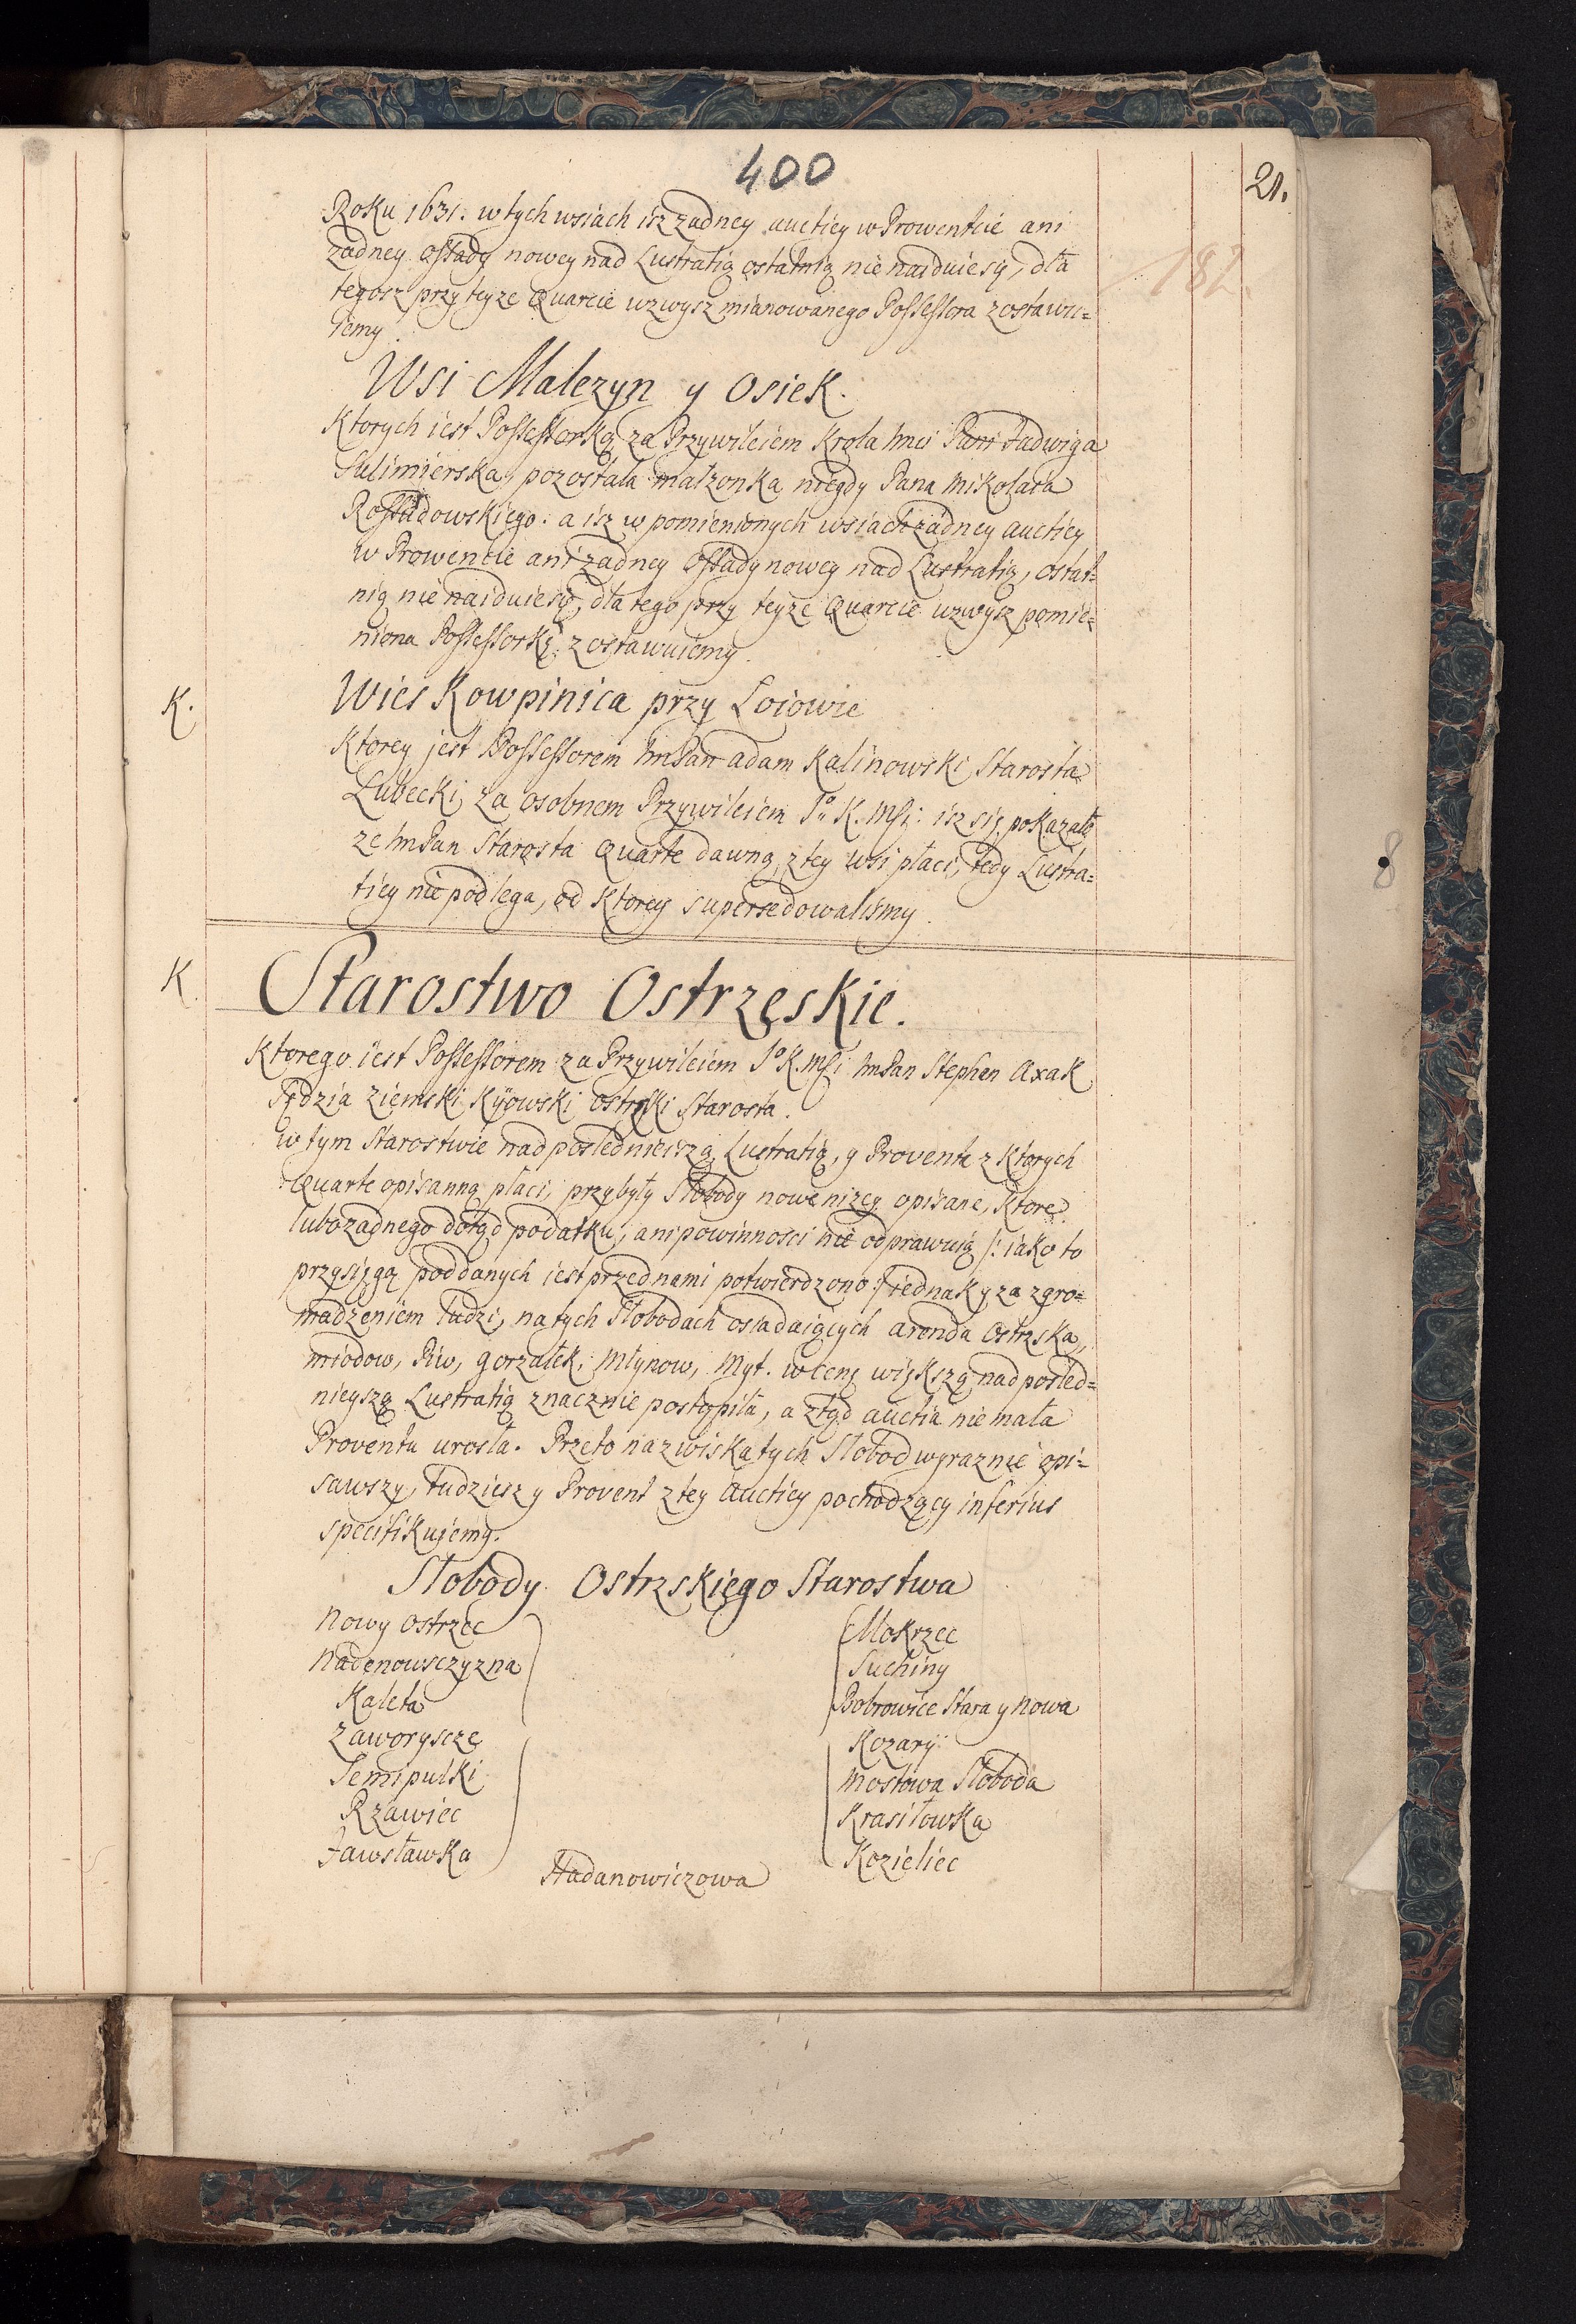 400
21.
Roku 1631. w tych wsiach isz zadney auctiey w Prowentcie ani
zadney ossady nowey nad Lustratią ostatnią nie naiduie się, dla
tegosz przy teyze Quarcie wzwysz mianowanego Possessora zostawu=
iemy.
182.
Wsi Malezyn y Osiek.
Ktorych iest Possessorką za Przywileiem Krola Jmci Pani Jadwiga
Sulimierska, pozostała małzonka niegdy Pana Mikołaia
Rossudowskiego: a isz w pomienionych wsiach zadney auctiey
w Prowencie ani zadney ossady nowey nad Lustratią, ostat=
nią nie naiduie się, dla tego przy teyze Quarcie wzwysz pomie=
niona Possessorkę zostawuiemy.
K.
Wies Kowpinica przy Loiowie
Ktorey jest Possessorem JmPan Adam Kalinowski Starosta
Lubecki, za osobnem Przywileiem Jo K. Mści: isz się pokazało
ze JmPan Starosta Quarte dawną z tey wsi płaci, tedy Lustra=
tiey nie podlega, od Ktorey supersedowalismy.
8
K.
Starostwo Ostrzęskie.
Ktorego iest Possessorem za Przywileiem Jo K. Mści JmPan Stephan Axak
Sędzia ziemski Kijowski Ostrski Starosta.
w tym Starostwie nad posledniejszą Lustratią, y Proventa z Ktorych
Quarte opisanną płaci, przybyły Słobody nowe nizey opisane, Ktore
lubo zadnego dotąd podatku, ani powinnosci nie odprawuią /: iako to
przysięgą poddanych iest przed nami potwierdzono :/ iednak y za zgro=
madzeniem ludzi, na tych Słobodach osiadaiących arenda Ostrzska,
miodow, Piw, gorzałek, Młynow, Myt. w cenę większą nad posled=
nieyszą Lustratią znacznie postąpiła, a ztąd auctia nie mała
Proventu urosła. Przeto nazwiska tych Słobod wyraznie opi=
sawszy, tudziesz y Provent z tey Auctiey pochodzący inferius
specifikujemy.
Słobody Ostrzskiego Starostwa
Nowy Ostrzec
Nadenowsczyzna
Kaleta
Zaworyscze
Semipulki
Rzawiec
Jawsławka
Hadanowiczowa
Mokrzec
Suchiny
Bobrowice Stara y Nowa
Kozary
Mostowa Słoboda
Krasiłowka
Kozieliec